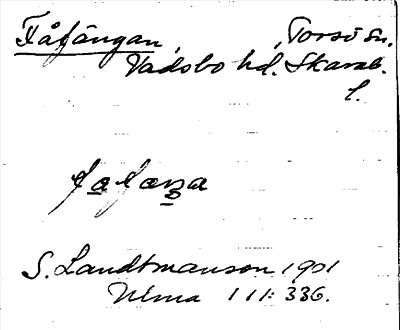 Fåfängan, Torsö sn.
Vadsbo hd. Skarab.
l.
fafaŋa
S. Landtmanson 1901
Uima 111: 336.